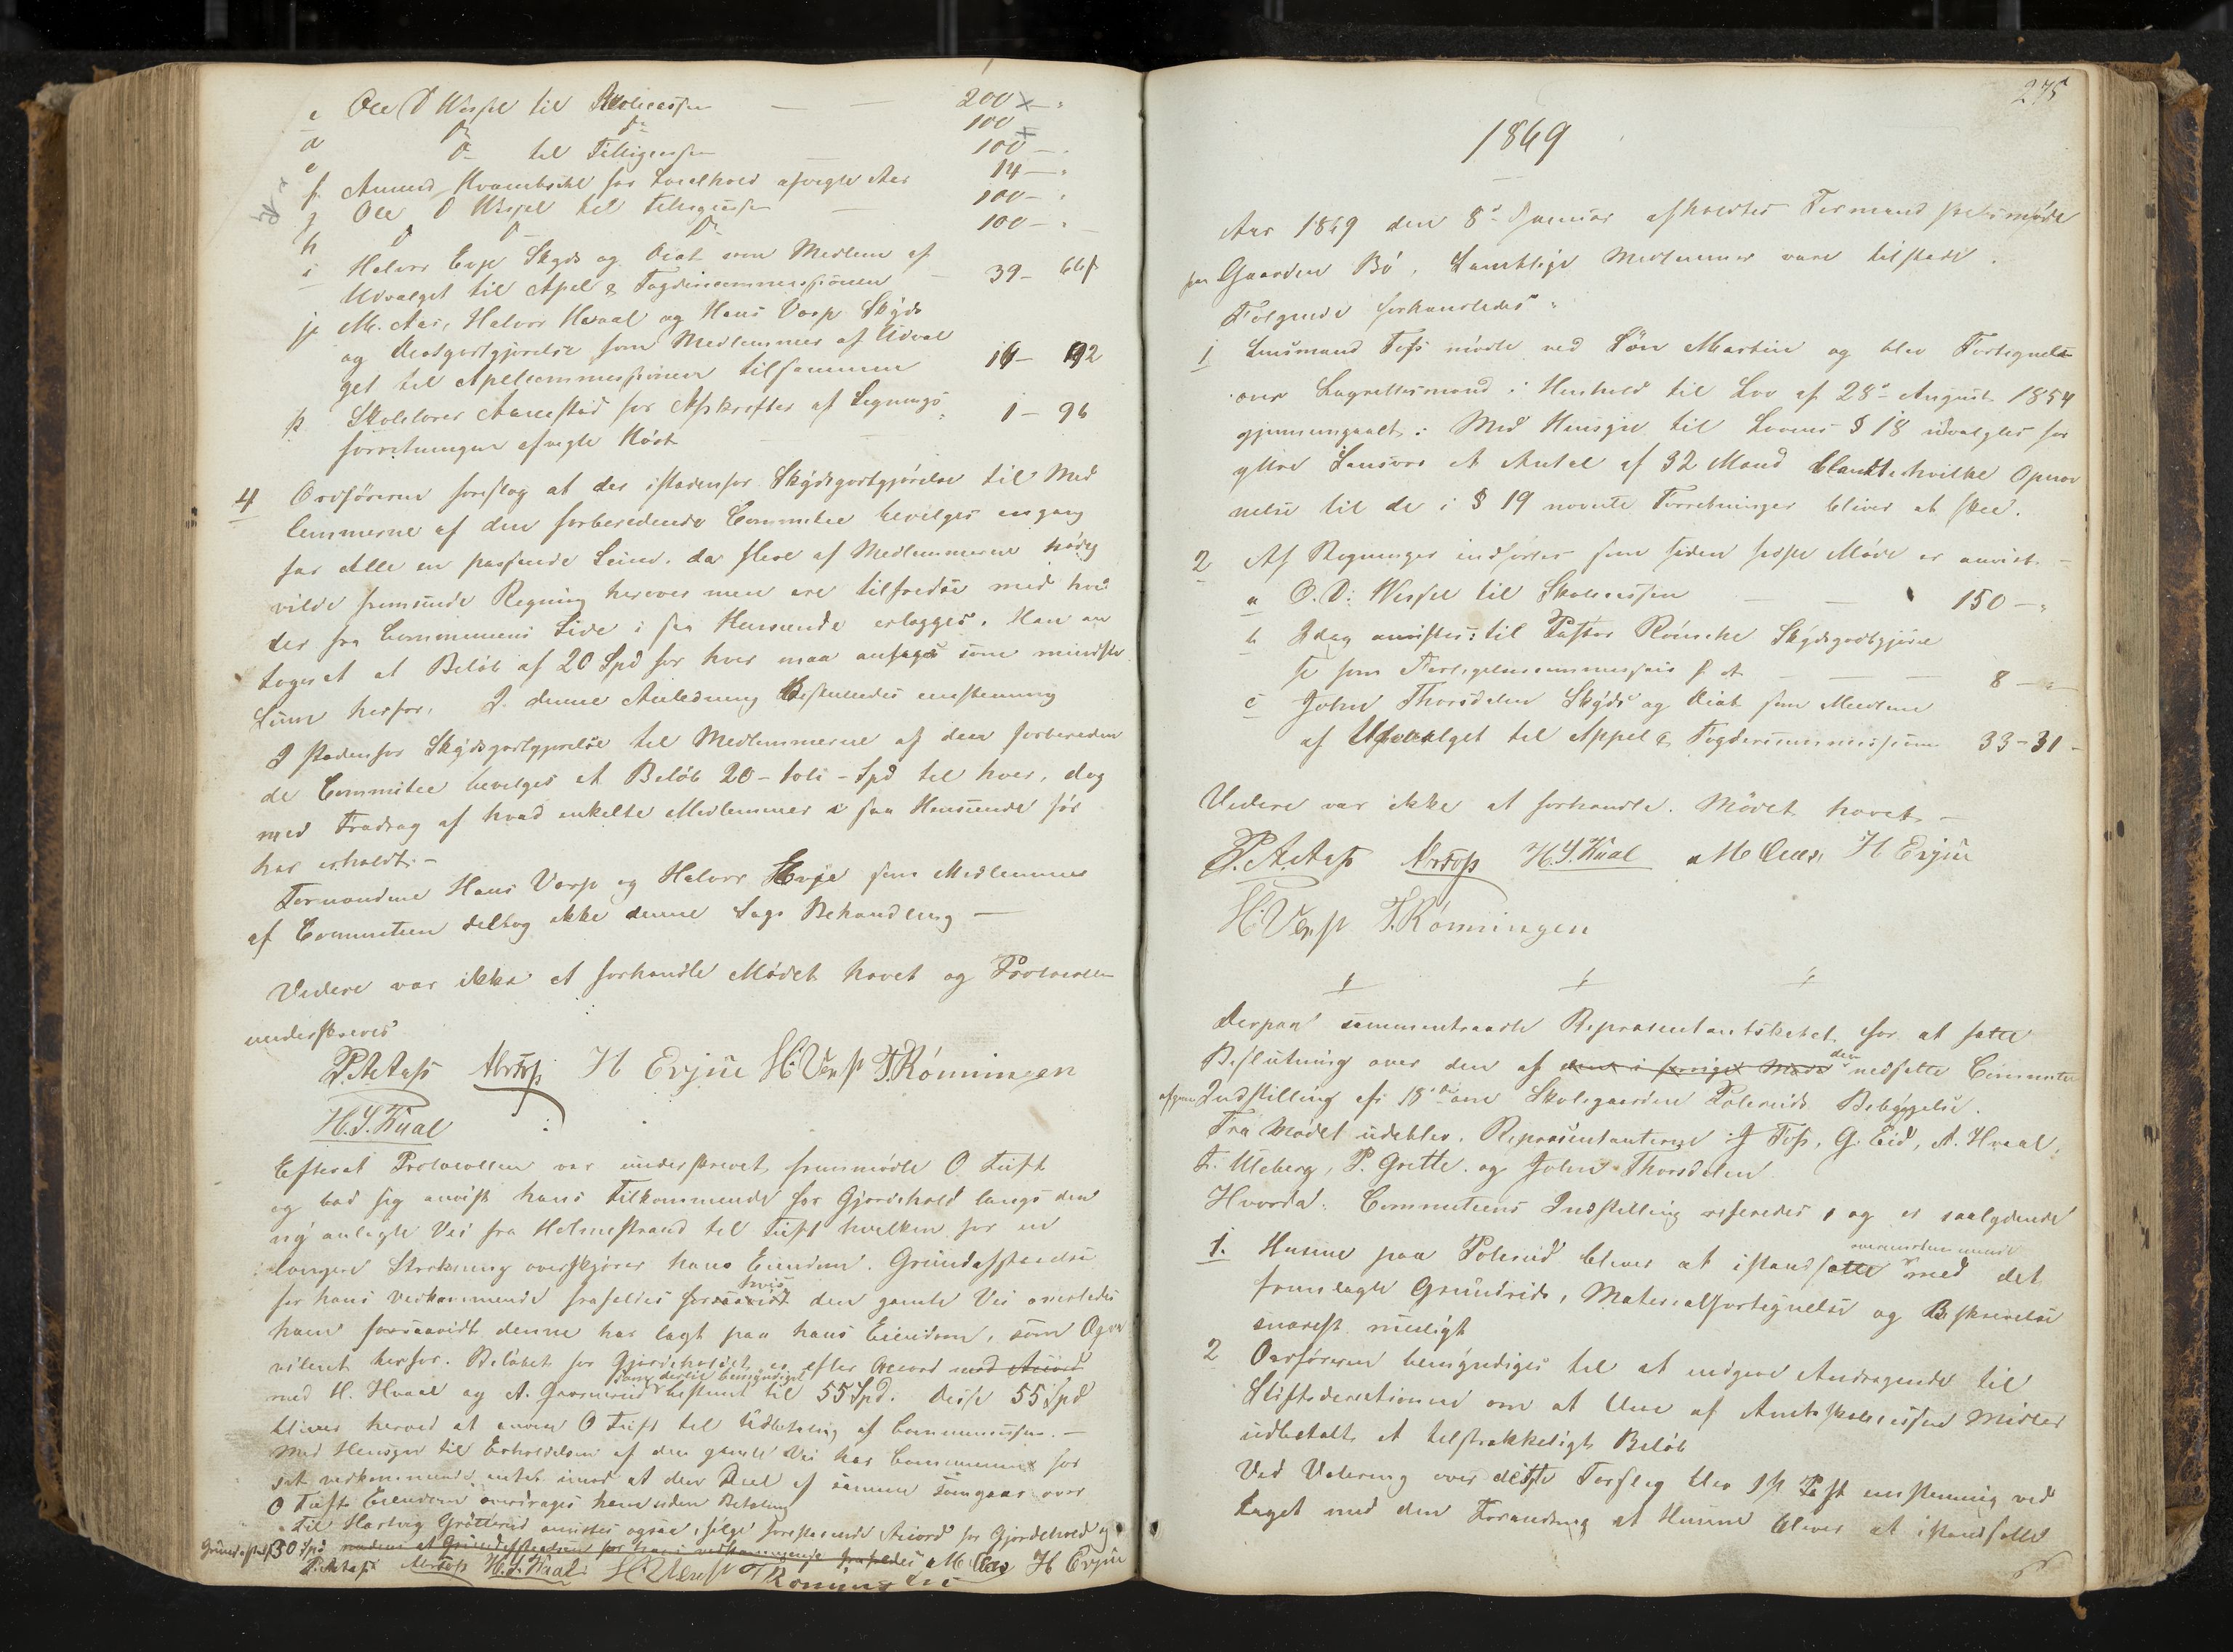 c Ole D Wessel til Skolecassen — — 200 — "
d Do Do 100
e Do til Fattigcassen 100 —
f. Amund Kvambekk for Locelhold afvigte Aar 14 — "
g Ole D Wessel til Fattigcassen — 100 — "
h D D Do 100 — "
i Halvor Evje Skyds og Diæt som Medlem af
Udvalget til Apel & Fogdericommissionen — 39 — 66 ſ
j M. Aas, Halvor Hvaal og Hans Vorp Skyds
og Diætgodtgjørelse som Medlemmer af Udval
get til Apelcommissionen tilsammen 16 — 92
k Skolelærer Aanestad for Afskrifter af Lignings
forretningen afvigte Høst 1 — 96
4 Ordføreren foreslog at der istedenfor Skydsgodtgjørelse til Med
lemmerne af den forberedende Committee bevilges engang
for Alle en passende Sum, da flere af Medlemmerne nødig
vilde fremsende Regning herover men ere tilfredse med hvad
der fra Communens Side i saa Henseende erlægges. Han an
tager at et Beløb af 20 Spd for hver maa ansees som mindste
Sum herfor. I denne Anledning Besluttedes eenstemmig
I stedenfor Skydsgodtgjørelse til Medlemmerne af den forbereden
de Committee bevilges et Beløb 20 - tyve - Spd til hver, dog
med Fradrag af hvad enkelte Medlemmer i saa Henseende før
har erholdt. —
Formændene Hans Vorp og Halvor Evje som Medlemmer
af Committeen deltog ikke denne Sags Behandling —
Videre var ikke at forhandle Mødet hævet og Protocollen
underskreves
P. A. Aass H Evjue H. Vorp T. Rønningen
H. S. Kual
Efterat Protocollen var underskrevet fremmødte O. Tuft
og bad sig anvist hans Tilkommende for Gjærdehold langs den
ny anlagte Vei fra Holmestrand til Tuft hvilken for en
længere Strækning overskjærer hans Eiendom. Grundafstaaelse
for hans Vedkommende frafaldes forsaavidt hvis den gamle Vei overlades
ham forsaavidt denne har lagt paa hans Eiendom, som Æqvi
valent herfor. Beløbet for Gjærdeholdet er efter Accord med Accord
med H. Hvaal og A. som dertil bemyndiget bestemt til 55 Spd. Disse 55 Spd
bliver herved at anvise O Tuft til Udbetaling af Communecassen. —
Med Hensyn til Erholdelsen af den gamle Vei har Communen for
sit Vedkommende intet imod at den Deel af samme som gaar over
O Tufts Eiendom overdrages ham uden Betaling
Til Hartvig Grøtterud anvistes ogsaa ifølge forestaaende Accord for Gjærdehold og
Grundafst. 30 Spd medens at Grundafstaaelsen for hans Vedkommende frafaldes M. Aas H Evjue
P. A. Aass H. S. Kual H. Vorp T Rønningen
275
1869
Aar 1869 den 8de Januar afholdtes Formandskabsmøde
paa Gaarden Bø. Samtlige Medlemmer vare tilstede.
Følgende forhandledes:
1 Lensmand Foss mødte ved Søn Martin og blev Fortegnelse
over Lagrettesmænd i Henhold til Lov af 28de August 1854
gjennemgaaet. Med Hensyn til Lovens § 18 udvalgtes for
ydre Sandsvær et Antal af 32 Mand blandt hvilke Opnæv
nelse til de i § 19 nævnte Forretninger bliver at skee.
2 Af Regninger indførtes som siden sidste Møde er anvist. —
a O. D. Wessel til Skolecassen — — 150 — "
b Idag anvistes: til Pastor Rønecke Skydsgodtgjørel
se som Forligelsescommissair f. A. — — — 8 — "
c John Thorsdalen Skyds og Diæt som Medlem
af Udvalget til Appel & Fogdericommission 33 - 31 -
Videre var ikke at forhandle. Mødet hævet —
P. A. Aass H. S. Kual M Aas, H Evjue
H. Vorp T. Rønningen
Derpaa sammentraadte Repræsentantskabet for at fatte
Beslutning over den af den i forrige Møde den nedsatte Committee
afgivne Indstilling af 18de om Skolegaarden Polerud's Bebyggelse.
Fra Mødet udeblev Repræsentanterne J. Foss, G. Eid, A. Hvaal,
Fr. Ulleberg, P. Grette og John Thorsdalen
Hvorda: Committeens Indstilling refereredes, og er saalydende
1. Husene paa Polerud bliver at istandsætte overensstemmende med det
fremlagte Grundrids, Materialfortegnelse og Beskrivelse
snarest mueligt
2 Ordføreren bemyndiges til at indgive Andragende til
Stiftsdirectionen om at blive af Amtsskolecassens Midler
udbetalt et tilstrækkeligt Beløb
Ved Votering over dette Forslag blev 1ste Post eenstemmig ved
taget med den Forandring at Husene bliver at istandsætte